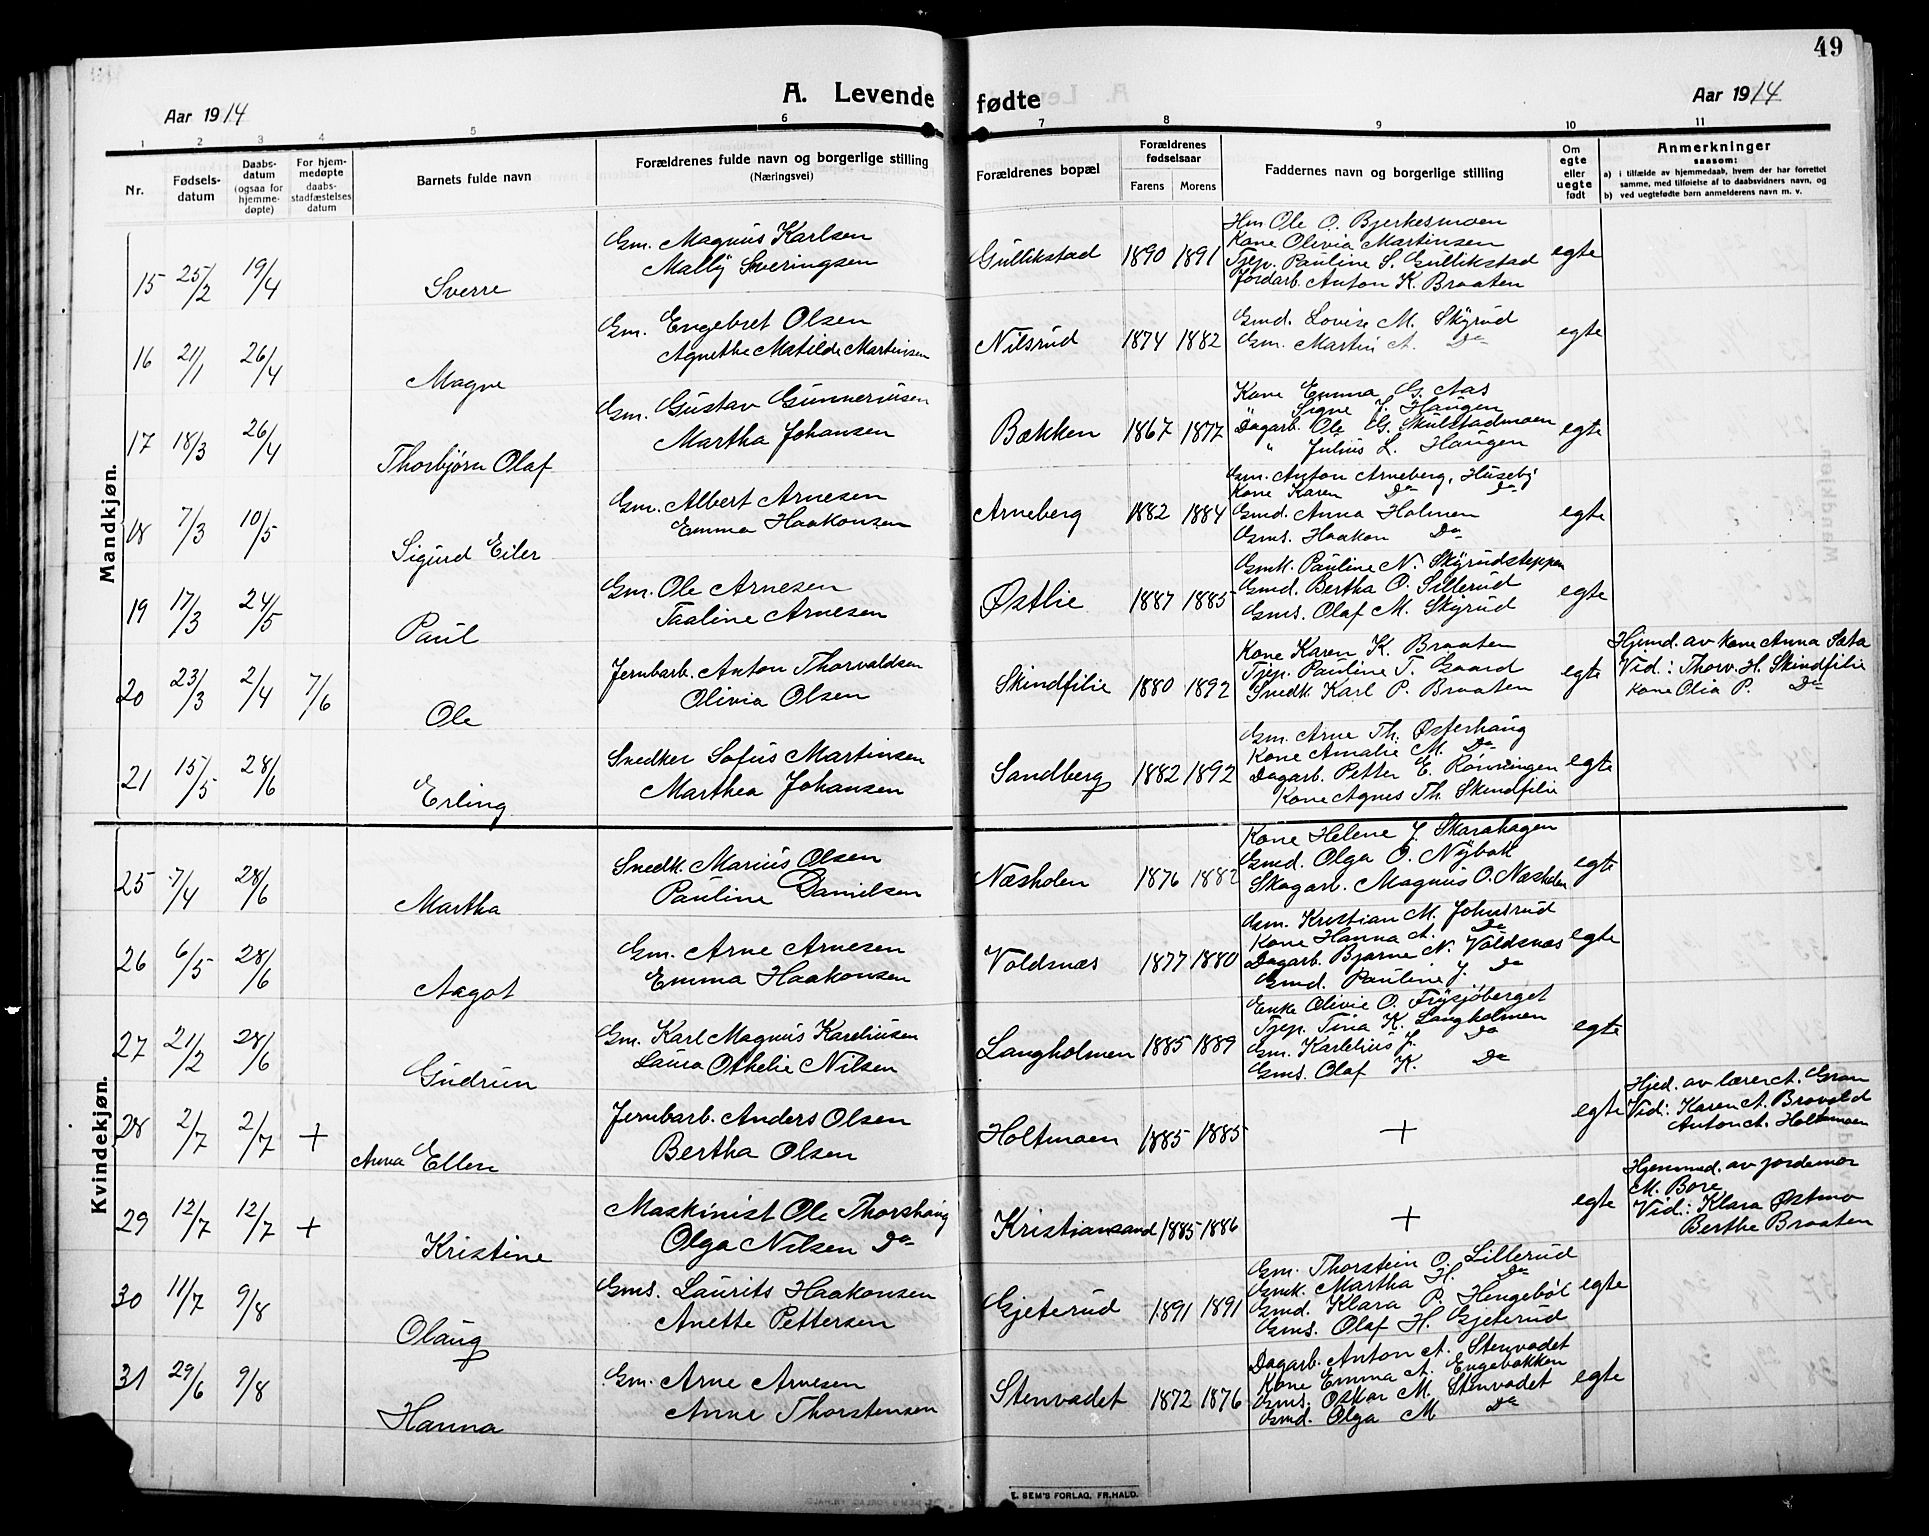 49
A. Levende fødte
Aar 1914
Aar 1914
1 2 3 4 5 6 7 8 9 10 11
Nr.
Fødsels-
datum
Daabs-
datum
(ogsaa for
hjemme-
døpte)
For hjem-
medøpte
daabs-
stadfæstelses
datum
Barnets fulde navn
Forældrenes fulde navn og borgerlige stilling
(Næringsvei)
Forældrenes bopæl
Forældrenes
fødselsaar
Farens Morens
Faddernes navn og borgerlige stilling
Om
egte
eller
uegte
født
Anmerkninger
saasom:
a) i tilfælde av hjemmedaab, hvem der har forrettet
samme, med tilføielse af to daabsvidners navn, og
b) ved uegtefødte børn anmelderens navn m. v.
Mandkjøn.
15 25/2 19/4 Sverre
Gm. Magnus Karlsen
Mally Sveringsen
Gullikstad 1890 1891
Hm Ole O. Bjerkesmoen
Kone Olivia Martinsen
Tjep. Pauline S. Gullikstad
Jordarb. Anton K. Braaten
egte
16 21/1 26/4 Magne
Gm. Engebret Olsen
Agnethe Matilde Martinsen
Nilsrud 1874 1882
Gmd. Lovise M. Skyrud
Gm. Martin A. Do
egte
17 18/3 26/4 Thorbjørn Olaf
Gm. Gustav Gunneriusen
Martha Johansen
Bækken 1867 1872
Kone Emma G. Aas
" Signe J. Haugen
Dagarb. Ole G. Skulstadmoen
" Julius L. Haugen
egte
18 7/3 10/5 Sigurd Eiler
Gm. Albert Arnesen
Emma Haakonsen
Arneberg 1882 1884
Gm. Anton Arneberg, Huseby
Kone Karen Do Do
Gmd. Anna Holmen
Gms. Haakon Do
egte
19 17/3 24/5 Paul
Gm. Ole Arnesen
Taaline Arnesen
Østlie 1887 1885
Gmk. Pauline N. Skyrudsteppen
Gmd. Bertha O. Lillerud
Gms. Olaf M. Skyrud
egte
20 23/3 2/4 7/6 Ole
Jernbarb. Anton Thorvaldsen
Olivia Olsen
Skindfilie 1880 1892
Kone Karen K. Braaten
Tjep. Pauline T. Gaard
Snedk. Karl P. Braaten
egte
Hjemd. av kone Anna Sæta
Vid: Thorv. H. Skindfilie
kone Olia P. Do
21 15/5 28/6 Erling
Snedker Sofus Martinsen
Marthea Johansen
Sandberg 1882 1892
Gm. Arne Th. Østerhaug
Kone Amalie M. Do
Dagarb. Petter E. Rønningen
Kone Agnes Th. Skindfilie
egte
Kvindekjøn.
25 7/4 28/6 Martha
Snedk. Marius Olsen
Pauline Danielsen
Næsholen 1876 1882
Kone Helene J. Skarahagen
Gmd. Olga O. Nybak
Skogarb. Magnus O. Næsholen
egte
26 6/5 28/6 Aagot
Gm. Arne Arnesen
Emma Haakonsen
Voldsnæs 1877 1880
Gm. Kristian M. Johnsrud
Kone Hanna A. Do
Dagarb. Bjarne N. Voldsnæs
Gmd. Pauline J. Do
egte
27 21/2 28/6 Gudrun
Gm. Karl Magnus Kareliusen
Laura Othelie Nilsen
Langholmen 1885 1889
Enke Olivie O. Frysjøberget
Tjep. Tina K. Langholmen
Gm. Karelius J. Do
Gms. Olaf K. Do
egte
28 2/7 2/7 + Anna Ellen
Jernbarb. Anders Olsen
Bertha Olsen
Holtmoen 1885 1885
+
egte
Hjed. av lærer A. Gran
Vid: Karen A. Bravold
Anton A. Holtmoen
29 12/7 12/7 + Kristine
Maskinist Ole Thorshaug
Olga Nilsen Do
Kristiansand 1885 1886
+
egte
Hjemmed. av jordemor
M. Bore
Vid: Klara Østmo
Berthe Braaten
30 11/7 9/8 Olaug
Gms. Laurits Haakonsen
Anette Pettersen
Gjeterud 1891 1891
Gm. Thorstein O. Lillerud
Gmk. Martha H. Do
Gmd. Klara P. Hengebøl
Gms. Olaf H. Gjeterud
egte
31 29/6 9/8 Hanna
Gm. Arne Arnesen
Anne Thorstensen
Stenvadet 1872 1876
Dagarb. Anton A. Stenvadet
Kone Emma A. Engebakken
Gms. Oskar M. Stenvadet
Gmd. Olga M Do
egte
E. SEM'S FORLAG, FR.HALD.